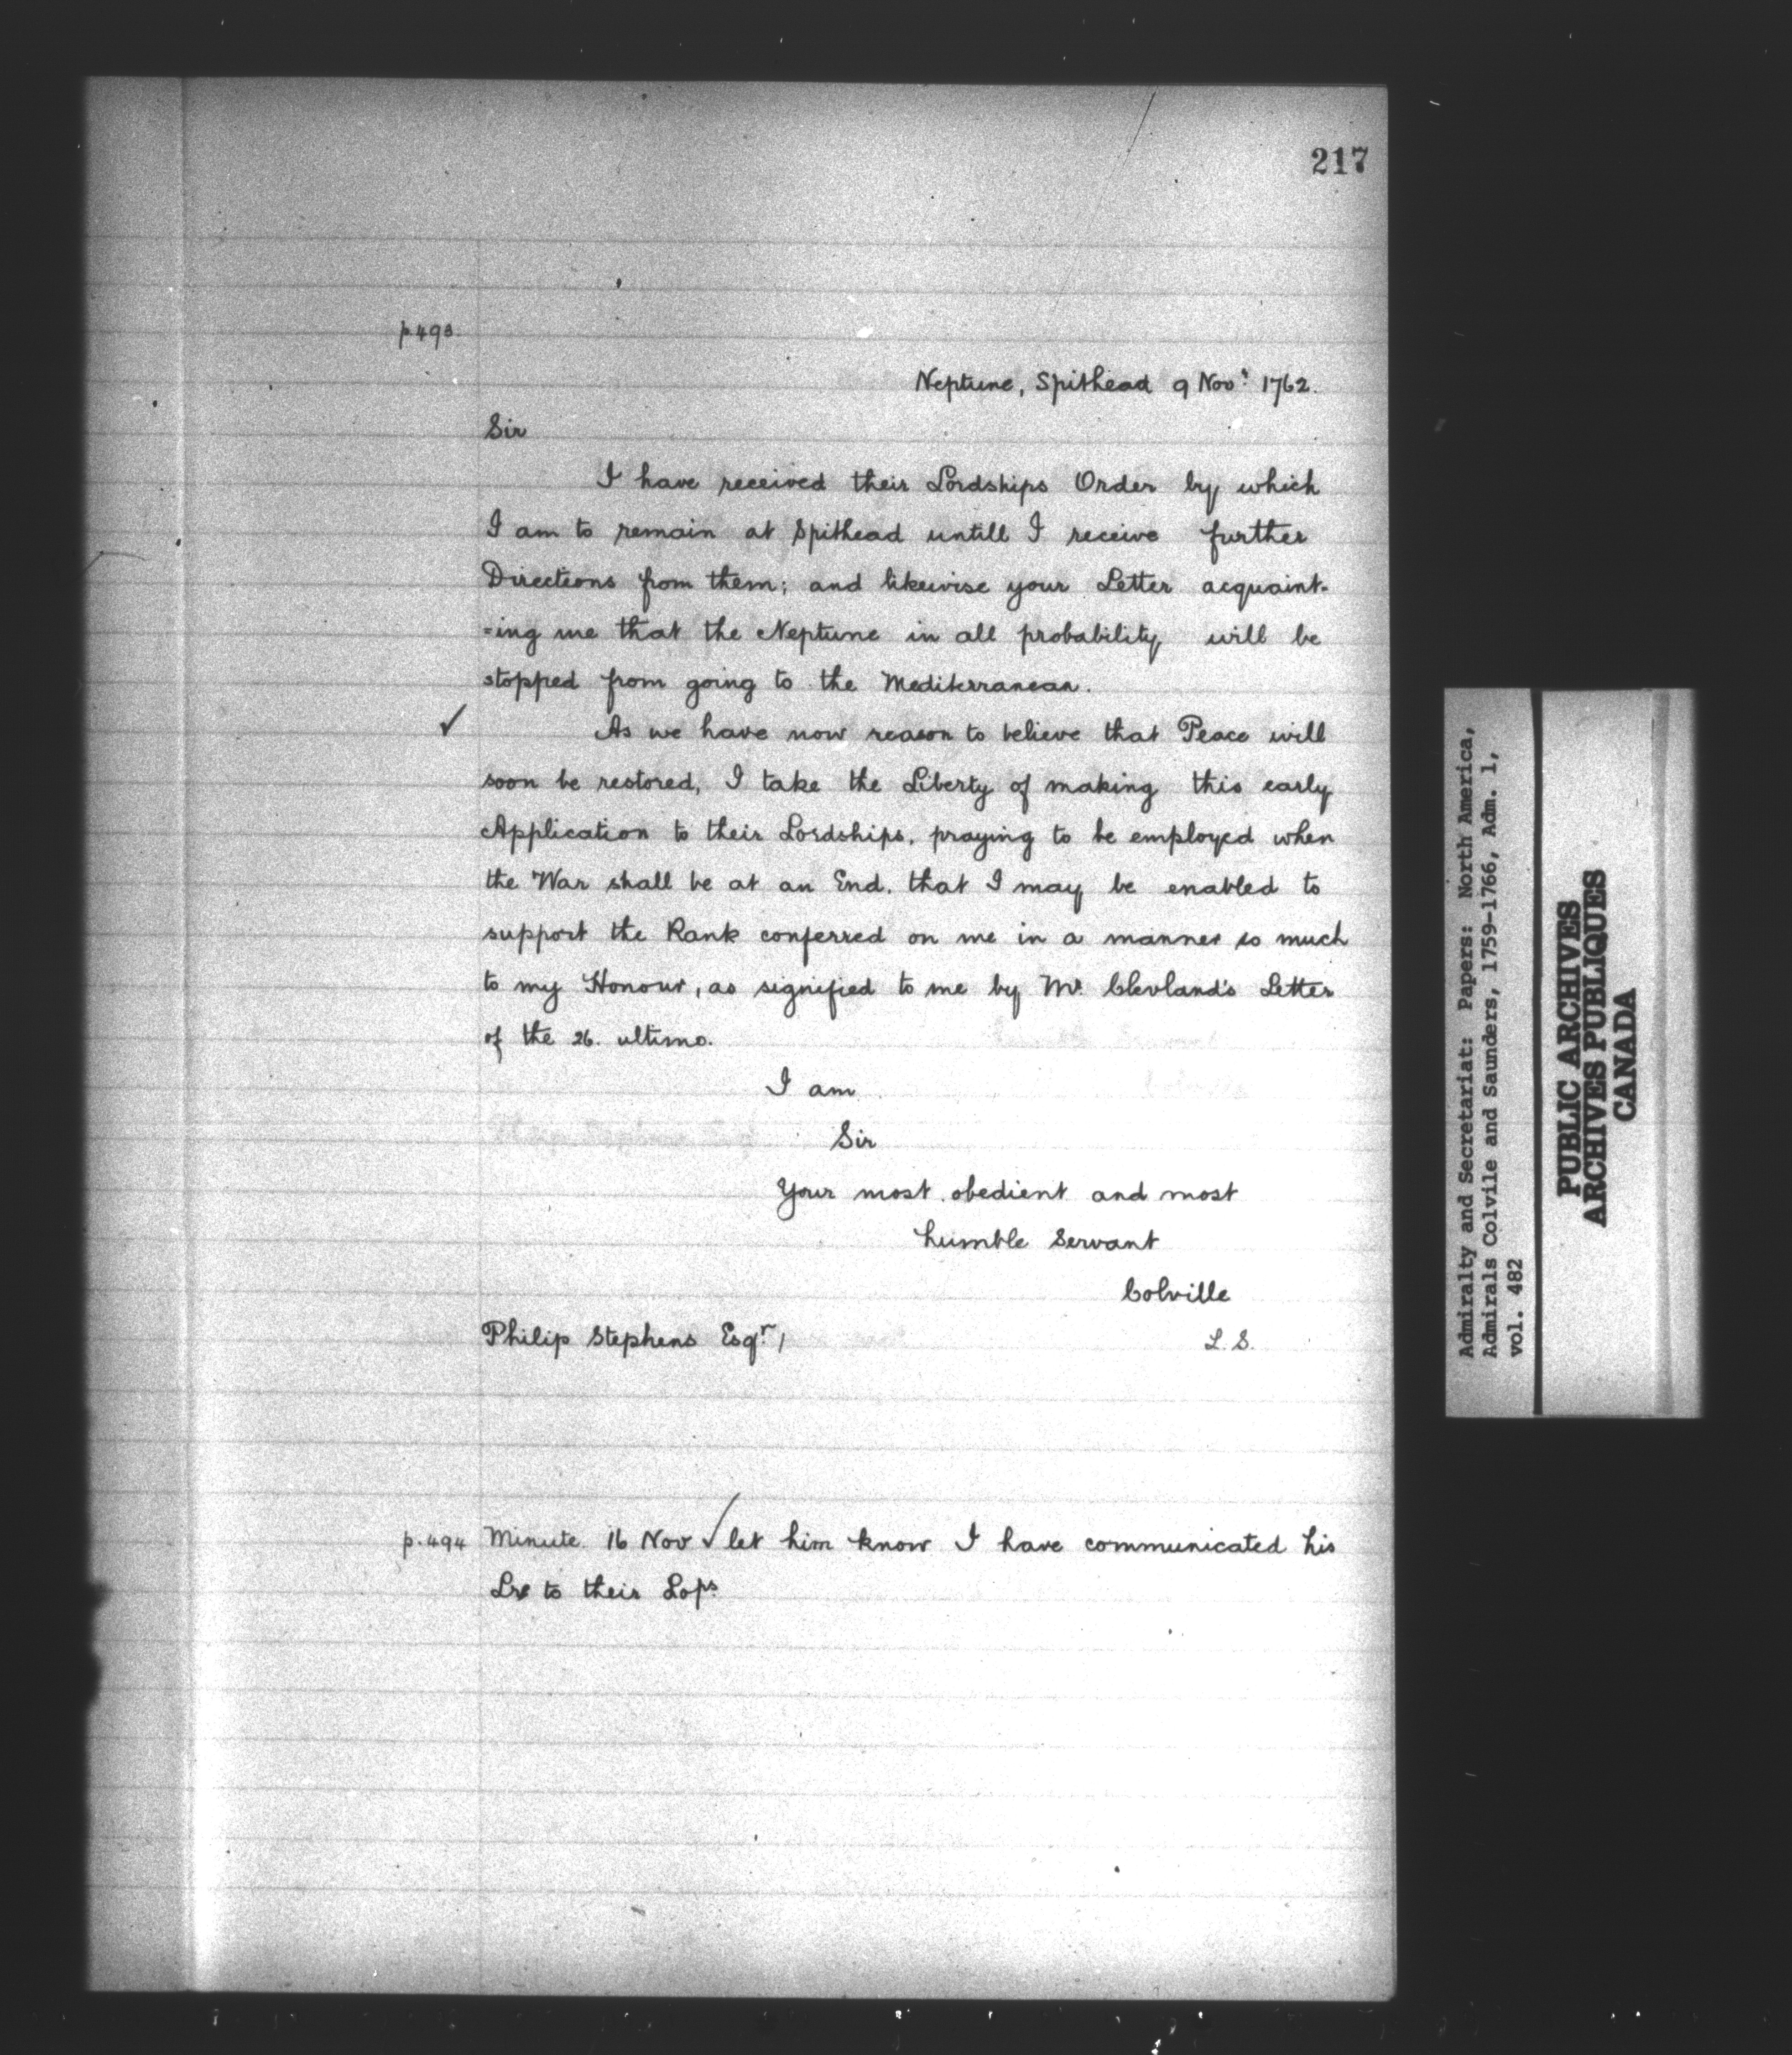 217
p.493.
Neptune, Spithead 9 Novr 1762.
Sir
I have received their Lordships Order by which
I am to remain at Spithead untill I receive further
Directions from them; and likewise your Letter acquaint-
=ing me that the Neptune in all probability will be
stopped from going to the Mediterranean.
✓ As we have now reason to believe that Peace will
soon be restored, I take the Liberty of making this early
Application to their Lordships, praying to be employed when
the War shall be at an End, that I may be enabled to
support the Rank conferred on me in a manner so much
to my Honour, as signified to me by Mr. Clevland's Letter
of the 26. ultimo.
I am
Sir
Your most obedient and most
humble Servant
Colville
Philip Stephens Esqr. /
L. S.
p.494 Minute 16 Nov ✓ let him know I have communicated his
Lre to their Lops.
Admiralty and Secretariat: Papers: North America,
Admirals Colvile and Saunders, 1759-1766, Adm. 1,
vol. 482
PUBLIC ARCHIVES
ARCHIVES PUBLIQUES
CANADA